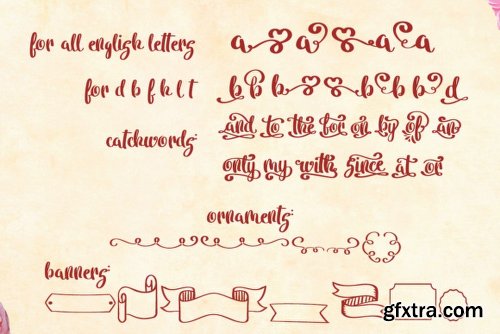 for all english letters
a a a a
for d b f k l t
b b b b b b d
catchwords:
and to the for on by of an
only my with since at or
ornaments:
banners:
gfxtra.com